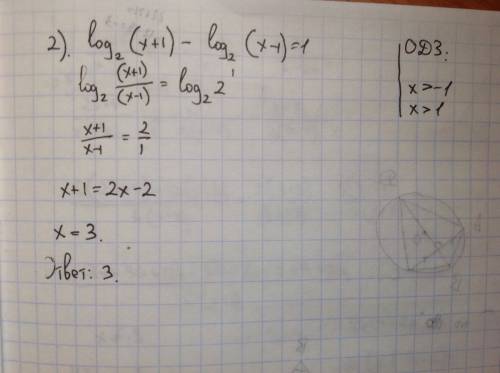 2). log₂ (x+1) - log₂ (x-1) = 1
log₂ (x+1)/(x-1) = log₂ 2¹
x+1/x-1 = 2/1
x+1 = 2x-2
x = 3.
Ответ: 3.
ОДЗ:
x > -1
x > 1